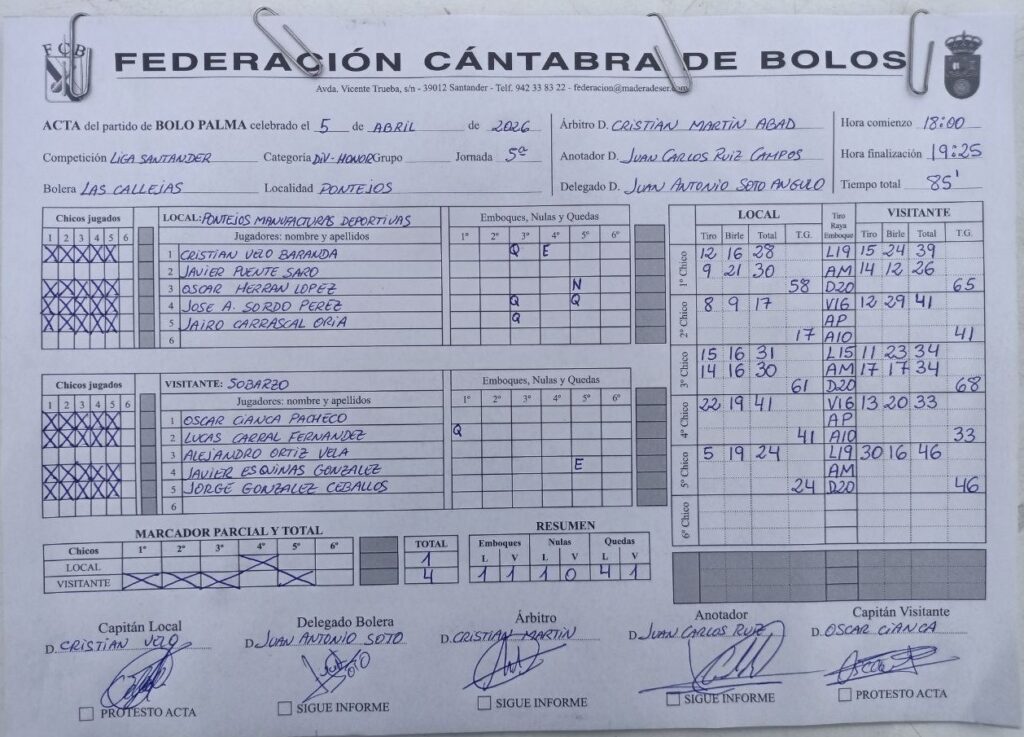 FCB
FEDERACIÓN CÁNTABRA DE BOLOS
Avda. Vicente Trueba, s/n - 39012 Santander - Telf. 942 33 83 22 - federacion@maderadeser.com
ACTA del partido de BOLO PALMA celebrado el 5 de ABRIL de 2026
Competición LIGA SANTANDER Categoría DIV-HONOR Grupo Jornada 5ª
Bolera LAS CALLEJAS Localidad PONTEJOS
Árbitro D. CRISTIAN MARTIN ABAD
Anotador D. JUAN CARLOS RUIZ CAMPOS
Delegado D. JUAN ANTONIO SOTO ANGULO
Hora comienzo 18:00
Hora finalización 19:25
Tiempo total 85'
Chicos jugados LOCAL: PONTEJOS MANUFACTURAS DEPORTIVAS Emboques, Nulas y Quedas
1 2 3 4 5 6 Jugadores: nombre y apellidos 1º 2º 3º 4º 5º 6º
X X X X X 1 CRISTIAN VELO BARANDA Q E
2 JAVIER PUENTE SARO
X X X X X 3 OSCAR HERRAN LOPEZ N
X X X X X 4 JOSE A. SORDO PEREZ Q Q
X X X X X 5 JAIRO CARRASCAL ORIA Q
6
Chicos jugados VISITANTE: SOBARZO Emboques, Nulas y Quedas
1 2 3 4 5 6 Jugadores: nombre y apellidos 1º 2º 3º 4º 5º 6º
X X X X X 1 OSCAR CIANCA PACHECO
X X X X X 2 LUCAS CARRAL FERNANDEZ Q
3 ALEJANDRO ORTIZ VELA
X X X X X 4 JAVIER ESQUINAS GONZALEZ E
X X X X X 5 JORGE GONZALEZ CEBALLOS
6
LOCAL Tiro Raya Emboque VISITANTE
Tiro Birle Total T.G. Tiro Birle Total T.G.
1º Chico 12 16 28 L19 15 24 39
9 21 30 AM 14 12 26
58 D20 65
2º Chico 8 9 17 V16 12 29 41
AP
17 A10 41
3º Chico 15 16 31 L15 11 23 34
14 16 30 AM 17 17 34
61 D20 68
4º Chico 22 19 41 V16 13 20 33
AP
41 A10 33
5º Chico 5 19 24 L19 30 16 46
AM
24 D20 46
6º Chico
MARCADOR PARCIAL Y TOTAL
Chicos 1º 2º 3º 4º 5º 6º TOTAL
LOCAL X 1
VISITANTE X X X X 4
RESUMEN
Emboques Nulas Quedas
L V L V L V
1 1 1 0 4 1
Capitán Local
D. CRISTIAN VELO
PROTESTO ACTA
Delegado Bolera
D. JUAN ANTONIO SOTO
SOTO
SIGUE INFORME
Árbitro
D. CRISTIAN MARTIN
SIGUE INFORME
Anotador
D. JUAN CARLOS RUIZ
SIGUE INFORME
Capitán Visitante
D. OSCAR CIANCA
PROTESTO ACTA